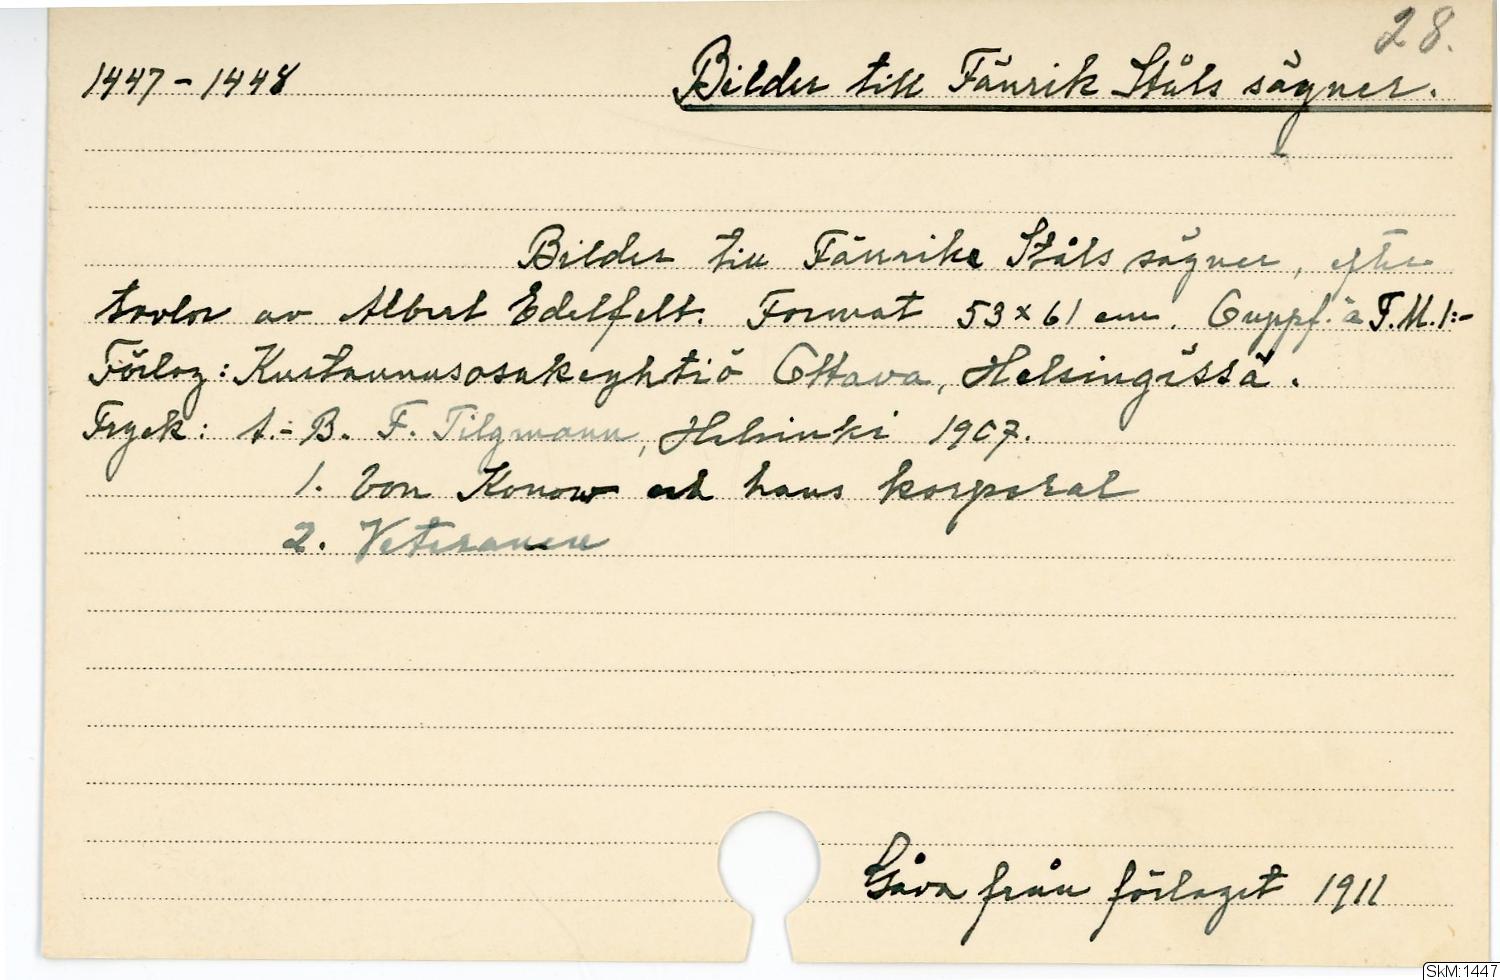 28.
1447-1448 Bilder till Fänrik Ståls sägner.
Bilder till Fänrik Ståls sägner, efter
tavlor av Albert Edelfelt. Format 53 x 61 cm. Ouppf. à F.M.1:-
Förlag: Kustannusosakeyhtiö Ottava, Helsingissä.
Tryck: A.-B. F. Tilgmann, Helsinki 1907.
1. Von Konow och hans korpral
2. Veteranen
Gåva från förlaget 1911
SkM:1447